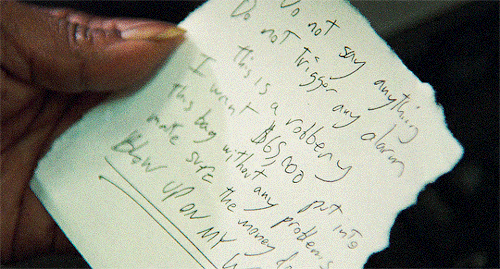 Do not say anything
Do not trigger any alarm
this is a robbery
I want $65,000 put into
this bag without any problems
make sure the money
Blow up on my